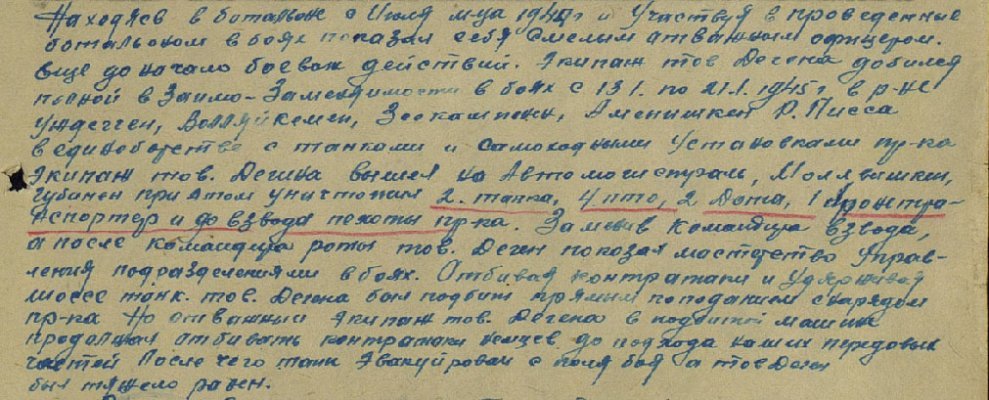 Находясь в батальон с Июля м-ца 1944г и Участвуя в проведенные
батальоном в боях показал себя смелым отважным офицером.
Еще до начало боевых действий. Экипаж тов Дегена добился
полной в Заимо-Заменимости в боях с 13.1. по 21.1. 1945г в р-не
Ундегген, Валляйкемен, Зоокампенн, Аменишкен Р. Писса
в единоборстве с танками и Самоходными Установками пр-ка
Экипаж тов. Дегина вышел на Автомогистраль, Моллвишкен,
Губинен при этом уничтожил 2. танка, 4 пто, 2 Дота, 1 бронтра-
нспортер и до взвода пехоты пр-ка. Заменив командира взвода,
а после командира роты тов. Деген показал мастерство Управ-
ления подразделениями в боях. Отбивая контратаки и Удерживая
шоссе танк. тов. Дегена был подбит прямым попаданием снарядом
пр-ка Но отважный Экипаж тов. Дегена в подбитой машине
продолжал отбивать контратаки немцев до подхода наших передовых
частей После чего танк Эвакуирован с поля боя а тов Деген
был тяжело ранен.